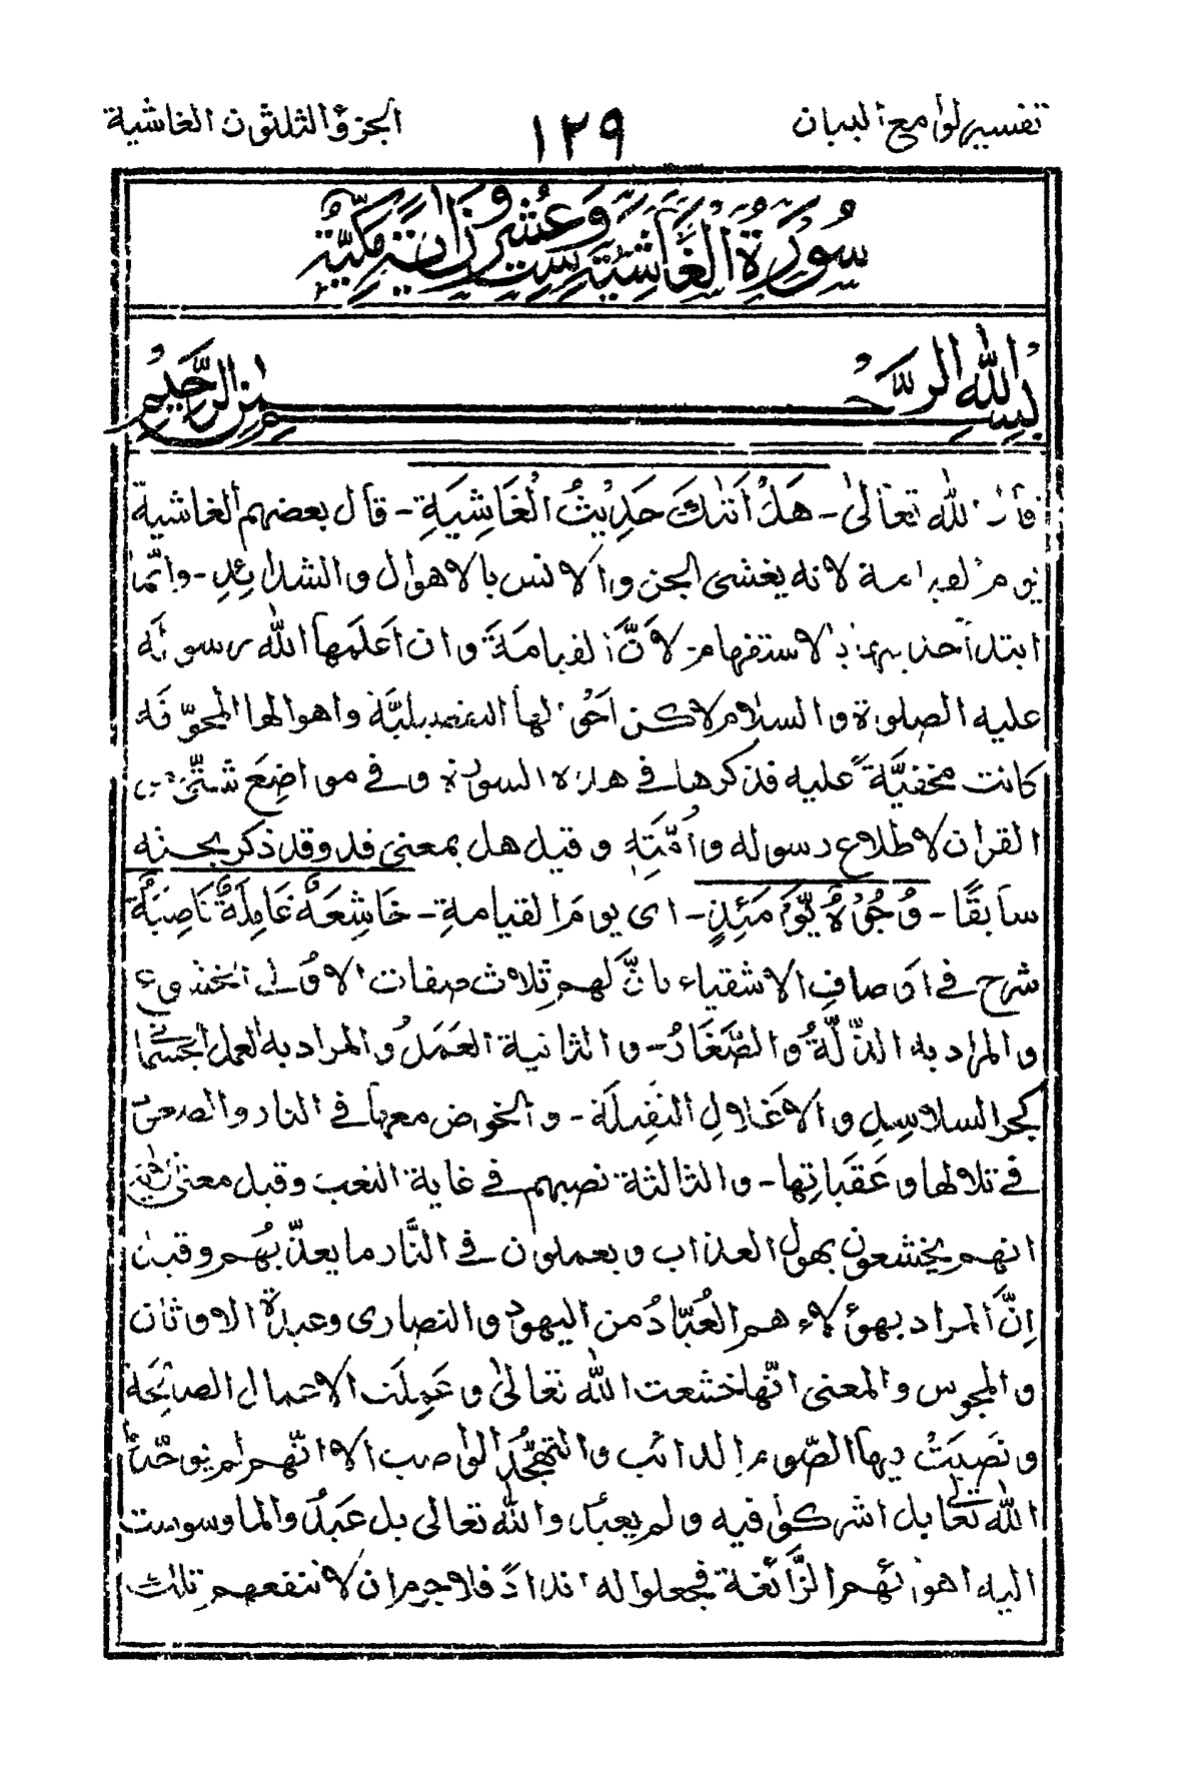 تفسير لوامع البيان
١٢٩
الجزؤ الثلثون الغاشية
سُوْرَةُ الْغَاشِيَةِ سِتٌّ وَّعُشِرُوْنَ اٰيَةً مَكِّيَّةٌ
بِسْمِ اللهِ الرَّحْمٰنِ الرَّحِيْمِ
قال الله تعَالىٰ - هَلْ اَتٰىكَ حَدِيْثُ الْغَاشِيَةِ - قال بعضهم الغاشية
يوم القيامة لانه يغشى الجن والانس بالاهوال والشدائدِ - وانّما
ابتدأ بالاستفهام لاَنَّ القيامَةَ وان اَعلَمها الله رسوله
عليه الصلوة والسلام لاكن احوالها التفصيليَّة واهوالها المخوّفَه
كانت مخفيَّةً عليه فذكرها في هذه السورة وفي مواضِعَ شتّى من
القران لاطلاع رسوله وأمَّتِهٖ وقيل هل بمعنى قد وقد ذكر بحثه
سابقًا - وُجُوْهٌ يَّوْمَئِذٍ - اى يومَ القيامةِ - خَاشِعَةٌ عَامِلَةٌ نَاصِبَةٌ
شرح في اوصافِ الاشقياء بانَّ لهم ثلاث صفات الاوُلى الخشوع
والمراد به الذّلّةُ والصَّغَارُ - والثانية العَمَلُ والمراد به العمل الجسمٰى
كجر السلاسِلِ والاَغلالِ الثقِيلَة - والخوض معها في النار والصعود
في تلالها وعَقَباتِها - والثالثة نصبهم في غاية التعب وقيل معنى
انهم يخشعون بهول العذاب ويعملون في النَّار ما يعذّبُهُم وقيل
اِنَّ المراد بهؤلاء هم العُبَّادُ من اليهود والنصارى وعبدة الاوثان
والمجوس والمعنى انّها خشعت الله تعَالىٰ وعَمِلَت الاعمال الصالِحَة
ونَصِبَتْ الصّوم الدائب والتهجُّد الواصب الا انّهم لم يوحّدوا
الله تعالىٰ بل اشركوا فيه ولم يعبدوا الله تعالى بل عَبَدُوا لما وسوست
اليه اهوائهم الزَّائغة فجعلوا له انداداً فلا جرم ان لا تنفعهم تلك